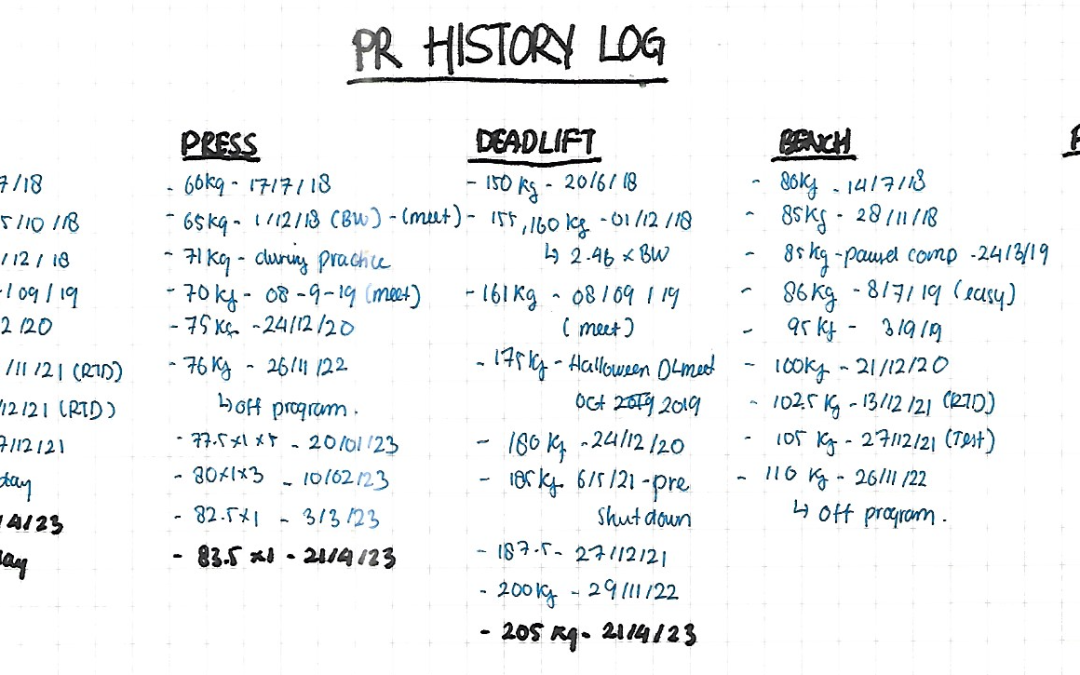 PR HISTORY LOG
7/18
5/10/18
/12/18
-/09/19
2/20
/11/21 (RTD)
/12/21 (RTD)
7/12/21
day
/4/23
day
PRESS
- 60kg - 17/7/18
- 65kg - 1/12/18 (BW) - (meet)
- 71kg - during practice
- 70kg - 08-9-19 (meet)
- 75kg - 24/12/20
- 76kg - 26/11/22
↳ off program.
- 77.5x1x5 - 20/01/23
- 80x1x3 - 10/02/23
- 82.5x1 - 3/3/23
- 83.5x1 - 21/4/23
DEADLIFT
- 150kg - 20/6/18
- 155,160kg - 01/12/18
↳ 2.46 x BW
- 161kg - 08/09/19
(meet)
- 175kg - Halloween DLmeet
Oct 2019 2019
- 180kg - 24/12/20
- 185kg 6/5/21 - pre
shutdown
- 187.5 - 27/12/21
- 200kg - 29/11/22
- 205kg - 21/4/23
BENCH
- 80kg - 14/7/18
- 85kg - 28/11/18
- 85kg - paused comp - 24/3/19
- 86kg - 8/7/19 (easy)
- 95kg - 3/9/19
- 100kg - 21/12/20
- 102.5kg - 13/12/21 (RTD)
- 105kg - 27/12/21 (Test)
- 110kg - 26/11/22
↳ Off program.